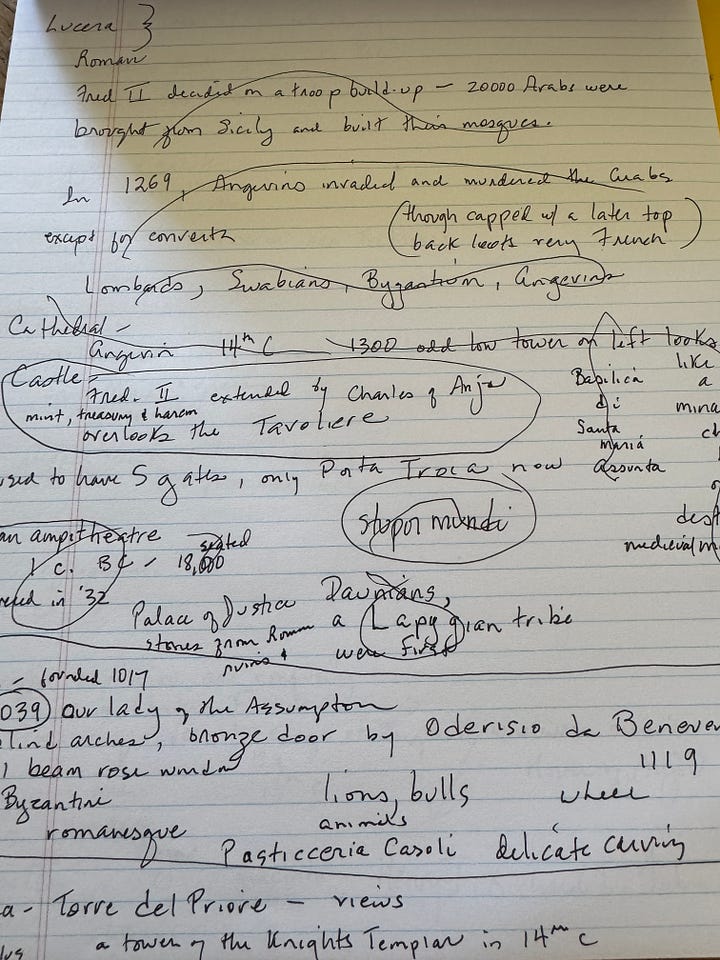 Lucera }
Roman
Fred II decided on a troop build-up – 20000 Arabs were
brought from Sicily and built their mosques.
In 1269, Angevins invaded and murdered the Arabs
except for converts
(though capped w/ a later top
back looks very French)
Lombards, Swabians, Byzantium, Angevins
Cathedral –
Angevin 14th C 1300 odd low tower on left looks
like
a
mina
Basilica
di
Santa
mariá
Assunta
Castle – Fred. II extended by Charles of Anjo
mint, treasury & harem
overlooks the Tavoliere
used to have 5 gates, only Porta Troia now
stupor mundi
an ampitheatre
1 c. BC – 18,000
seated
in '32
dest
medieval m
Palace of Justice
stones from Roman
ruins
Daunians,
a Lapygian tribe
were first
– founded 1017
1039) Our lady of the Assumption
lind arches, bronze door by Oderisio da Beneven
1119
1 beam rose window
Byzantine
romanesque
lions, bulls
animals
wheel
Pasticceria Casoli delicate carving
a – Torre del Priore – views
a tower of the Knights Templar in 14th C